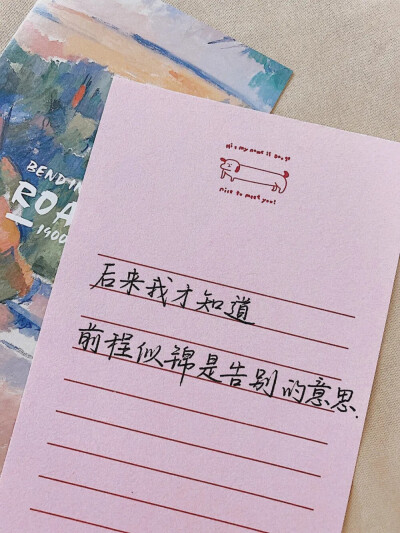 BENDIN
ROA
1900
Hi~ my name is
nice to meet you!
后来我才知道
前程似锦是告别的意思.